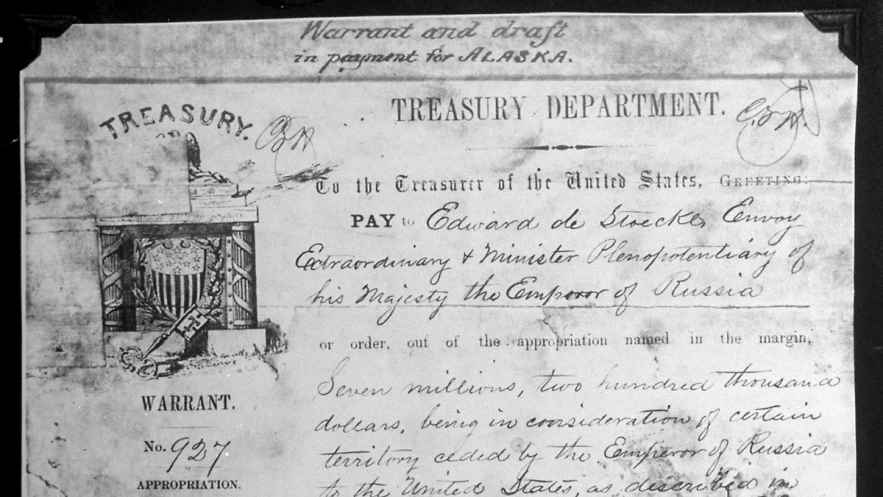 Warrant and draft
in payment for ALASKA.
TREASURY DEPARTMENT.
TREASURY.
To the Treasurer of the United States, GREETING:
PAY to Edward de Stoeckl, Envoy
Extraordinary & Minister Plenopotentiary of
his Majesty the Emperor of Russia
or order, out of the appropriation named in the margin,
Seven millions, two hundred thousand
dollars, being in consideration of certain
territory ceded by the Emperor of Russia
to the United States, as described in
WARRANT.
No. 927
APPROPRIATION.